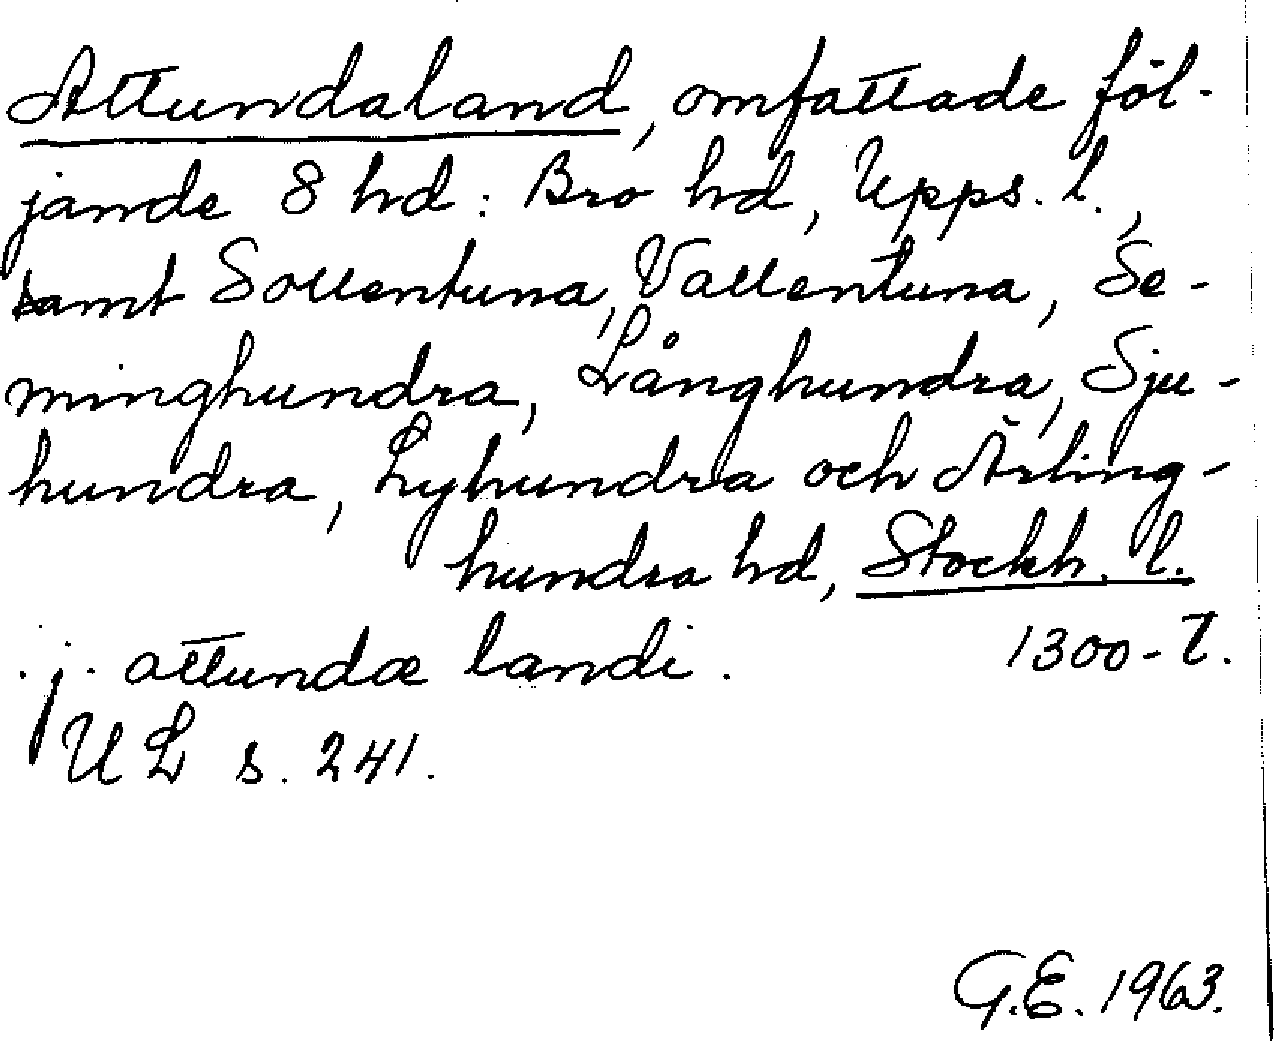 Attundaland, omfattade föl-
jande 8 hd: Bro hd, Upps. l.,
samt Sollentuna, Vallentuna, Se-
minghundra, Långhundra, Sju-
hundra, Lyhundra och Ärling-
hundra hd, Stockh. l.
j. attundæ landi. 1300-t.
UL s. 241.
G.E. 1963.